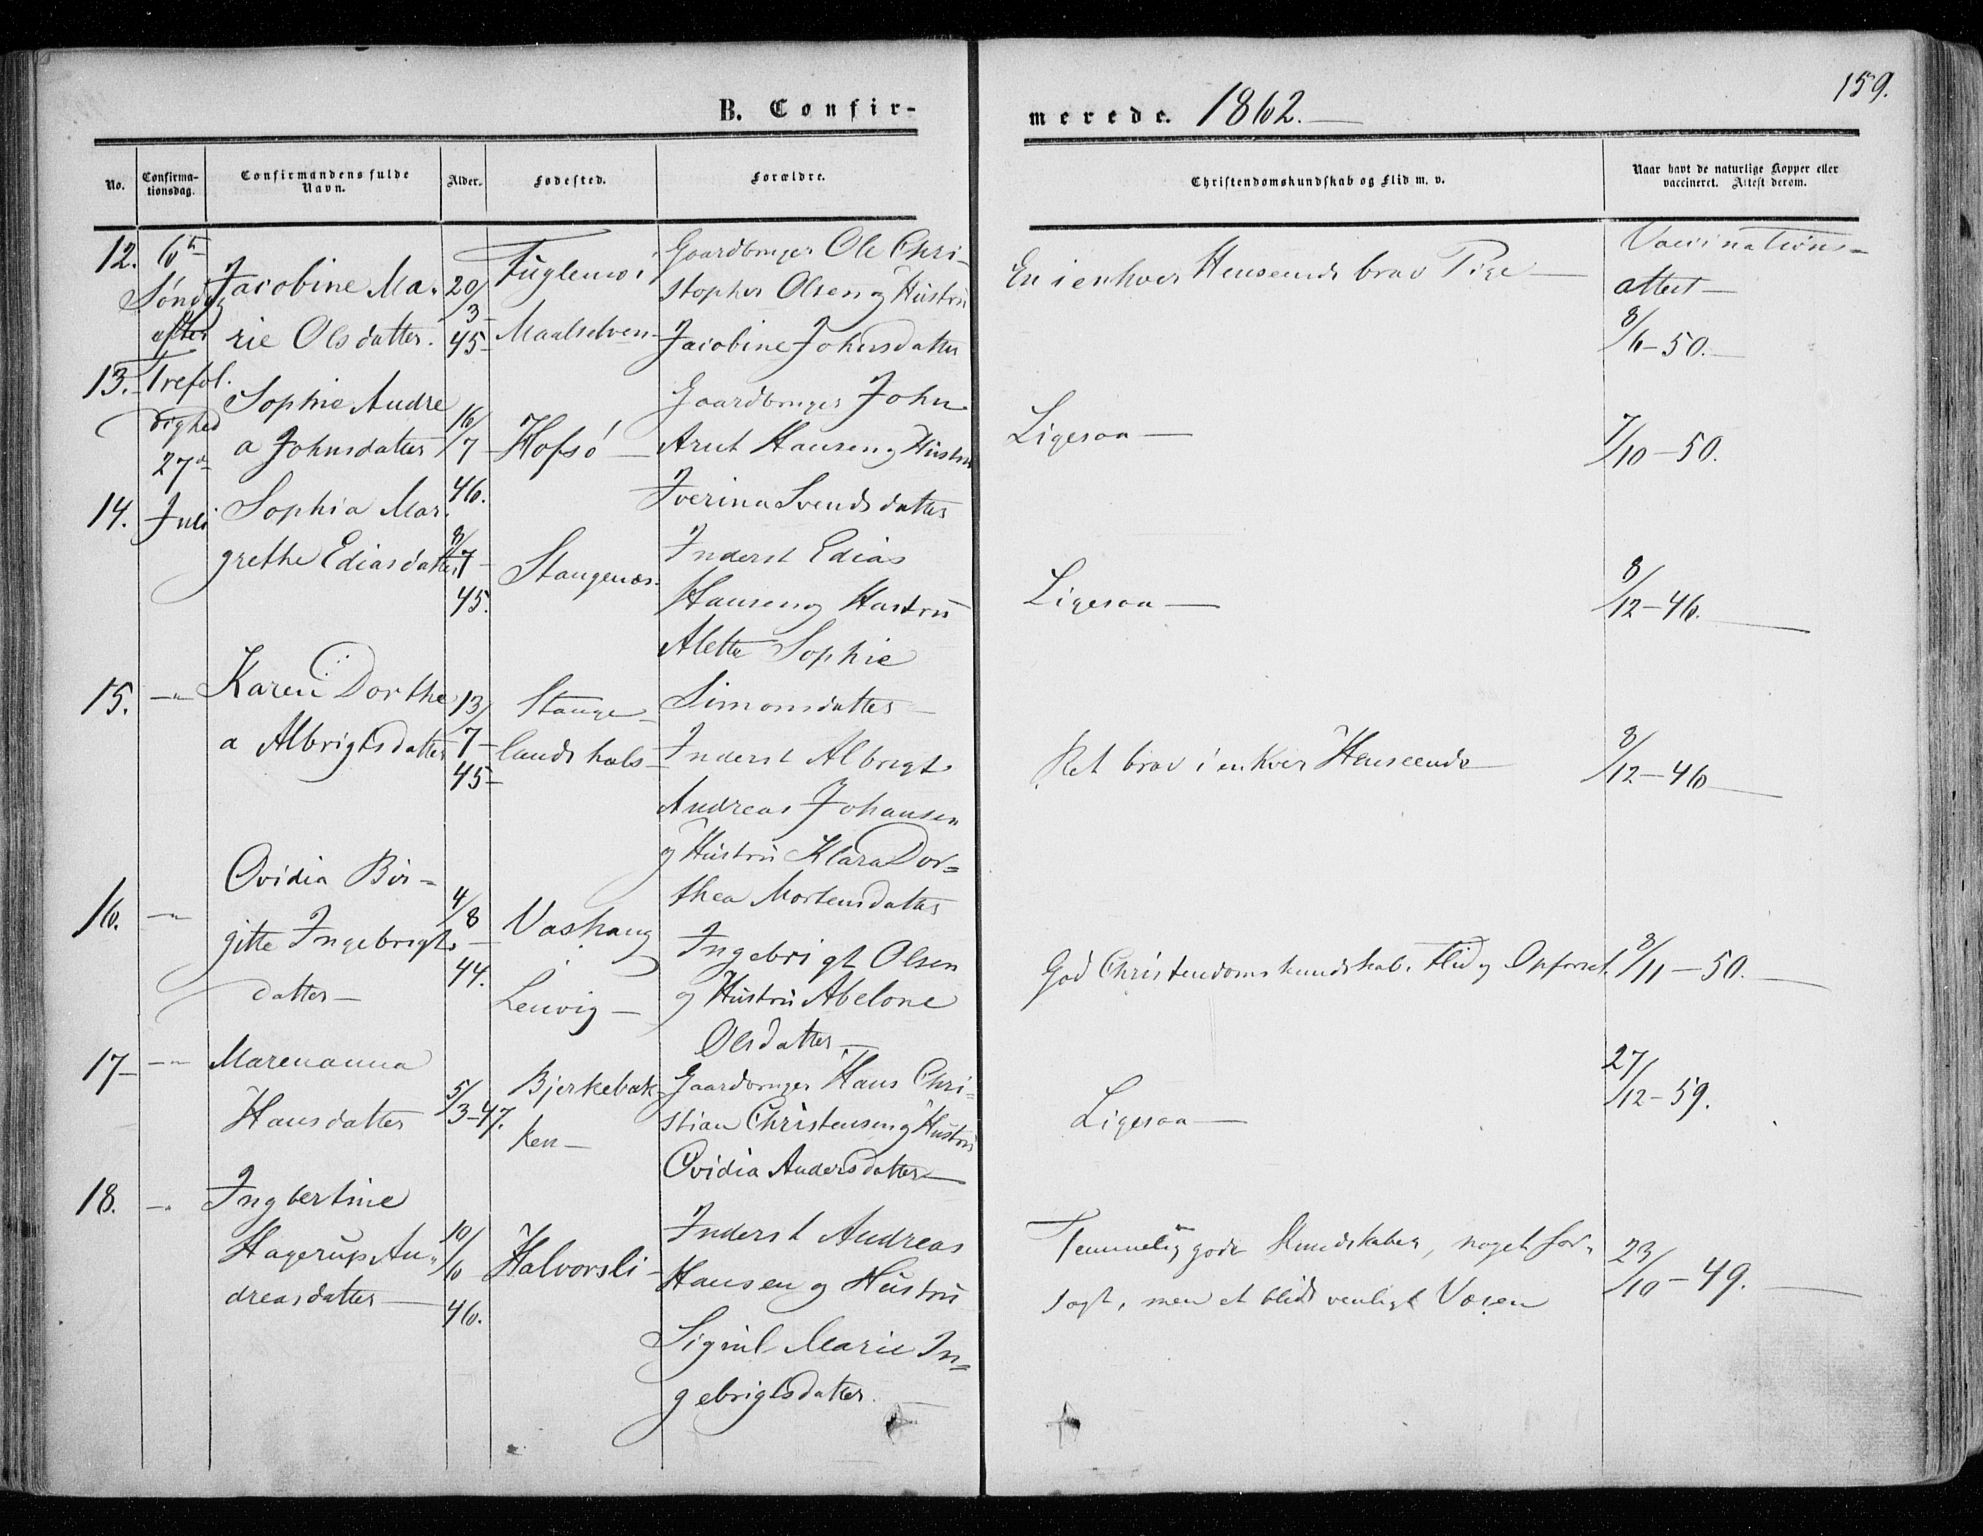 159.
B. Confir-
merede. 1862.
No.
Confirma-
tionsdag.
Confirmandens fulde
Navn.
Alder.
Fødested.
Forældre.
Christendomskundskab og Flid m. v.
Naar havt de naturlige Kopper eller
vaccineret. Attest derom.
12. 6te
Søndag
efter
Trefol-
dighed
27de
Juli
Jacobine Ma-
rie Olsdatter.
20/
3
45
Fuglemoi
Maalselven
Gaardbruger Ole Chri-
stopher Olsen og Hustru
Jacobine Johnsdatter
En i enhver Henseende brav Pige
Vaccinations-
attest
8/6-50.
13.
Sophie Andre
a Johnsdatter
16/
7
46.
Hofsö
Gaardbruger John
Arnt Hansen og Hustru
Iverina Svendsdatter
Ligesaa
7/10-50.
14.
Sophia Mar-
grethe Ediasdatter
8/
7
45.
Stangenæs
Inderst Edias
Hansen og Hustru
Alette Sophie
Simonsdatter
Ligesaa
8/12-46.
15. -"-
Karen Dorthe
a Albrigtsdatter
13/
7
45
Stange-
landshals
Inderst Albrigt
Andreas Johansen
og Hustru Klara Dor=
thea Mortensdatter
Ret brav i enhver Henseende
8/12-46
16. -"-
Ovidia Bir=
gitte Ingebrigts
datter
4/8
44.
Vashaug
Lenvig
Ingebrigt Olsen
og Hustru Abelone
Olsdatter
God Christendomskundskab, Flid og Opførsel.
8/11-50.
17 -"-
Marenanna
Hansdatter
5/3-47.
Bjerkebak-
ken
Gaardbruger Hans Chri-
stian Christensen og Hustru
Ovidia Andersdatter
Ligesaa
27/12-59.
18. -"-
Ingbertine
Hagerup An-
dreasdatter
10/6
46.
Halvorsli
Inderst Andreas
Hansen og Hustru
Marie In=
gebrigtsdatter.
Temmelig gode Kundskaber, noget for-
sagt, men et blidt venligt Væsen
23/10-49.